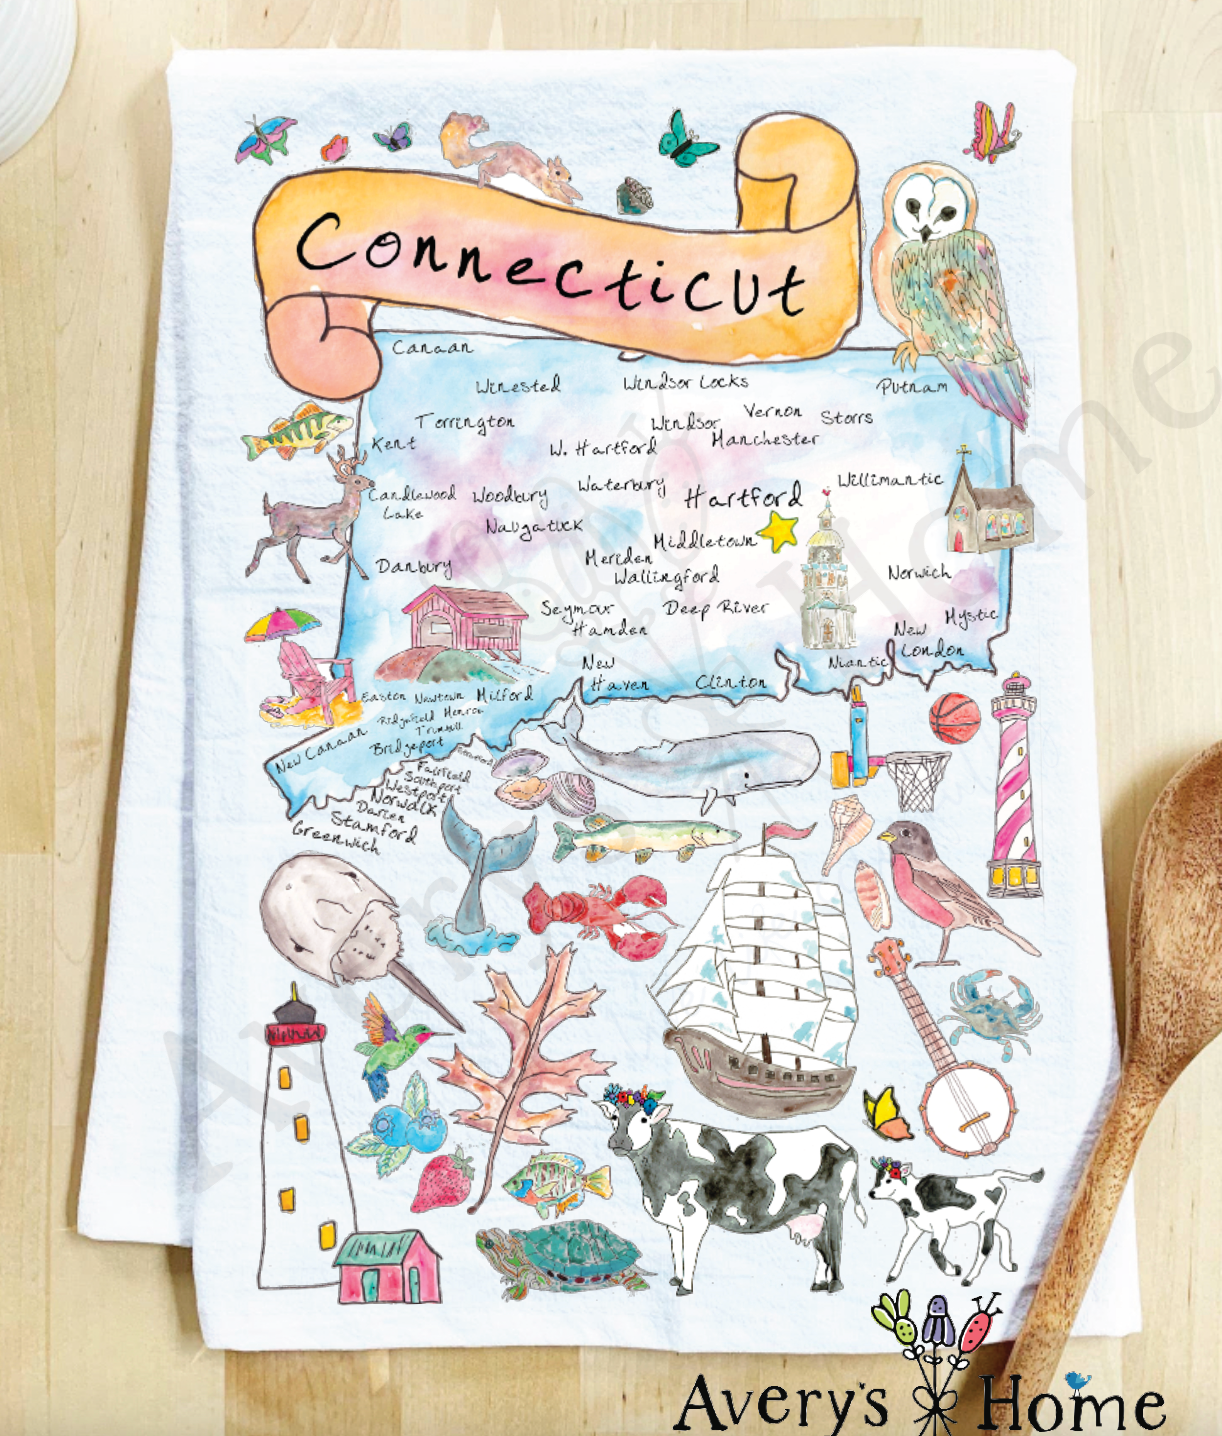 Connecticut
Canaan
Winested
Windsor Locks
Putnam
Torrington
Windsor
Vernon
Storrs
Kent
W. Hartford
Manchester
Candlewood
Lake
Woodbury
Waterbury
Hartford
Willimantic
Naugatuck
Middletown
Meriden
Wallingford
Danbury
Norwich
Seymour
Hamden
Deep River
Mystic
New
London
New
Haven
Clinton
Niantic
Easton
Newtown
Milford
Ridgefield
Monroe
Trumbull
New Canaan
Bridgeport
Fairfield
Southport
Westport
Norwalk
Darien
Stamford
Greenwich
Avery's Home
Avery's Home